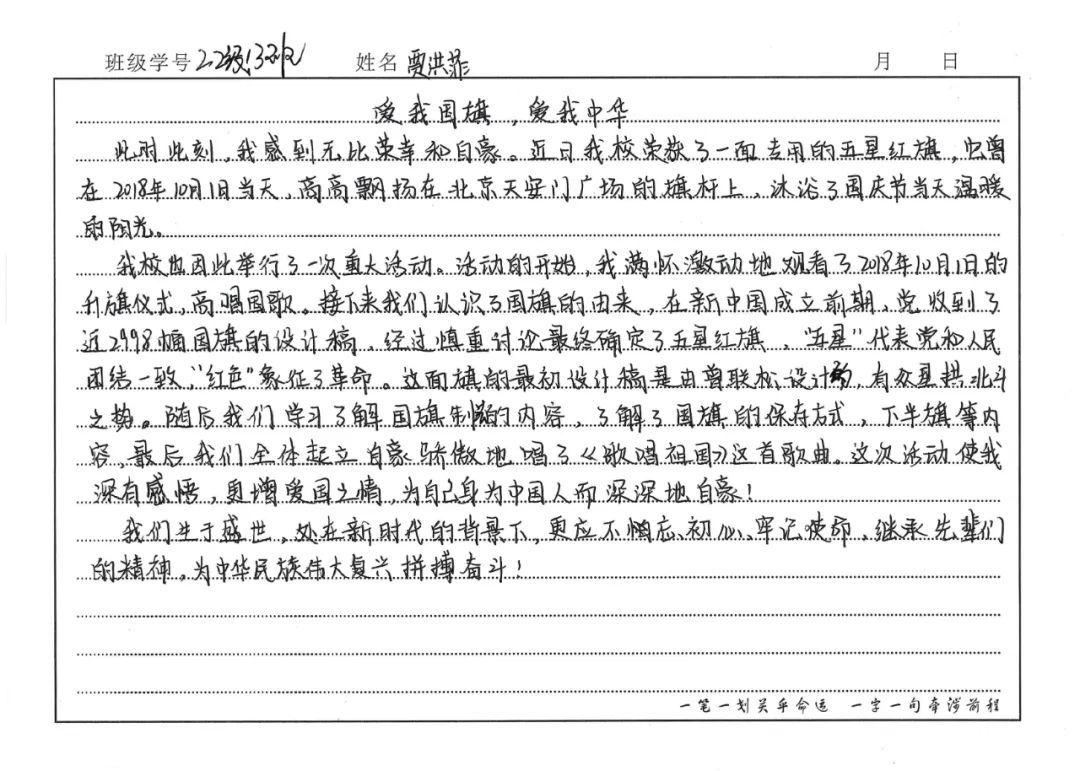 班级学号 22级13班 姓名 贾洪菲 月 日
爱我国旗，爱我中华
此时此刻，我感到无比荣幸和自豪。近日我校荣获了一面专用的五星红旗，它曾
在2018年10月1日当天，高高飘扬在北京天安门广场的旗杆上，沐浴了国庆节当天温暖
的阳光。
我校也因此举行了一次重大活动。活动的开始，我满怀激动地观看了2018年10月1日的
升旗仪式，高唱国歌。接下来我们认识了国旗的由来，在新中国成立前期，党收到了
近2998幅国旗的设计稿，经过慎重讨论最终确定了五星红旗，“五星”代表党和人民
团结一致，“红色”象征了革命。这面旗的最初设计稿是由曾联松设计的，有众星拱北斗
之势。随后我们学习了解国旗制作的内容，了解了国旗的保存方式，下半旗等内
容，最后我们全体起立自豪骄傲地唱了《歌唱祖国》这首歌曲。这次活动使我
深有感悟，更增爱国之情，为自己身为中国人而深深地自豪！
我们生于盛世，处在新时代的背景下，更应不忘初心、牢记使命，继承先辈们
的精神，为中华民族伟大复兴拼搏奋斗！
一笔一划关乎命运 一字一句牵涉前程